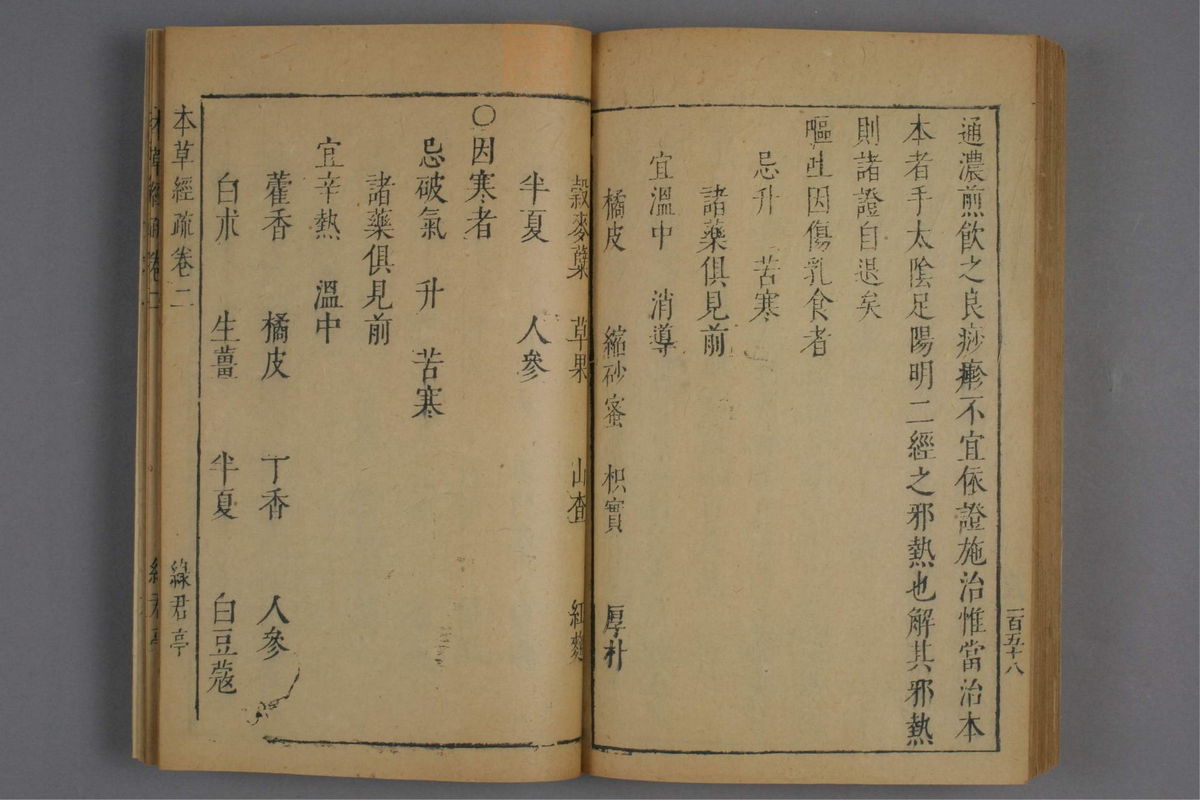 通濃煎飲之良痧瘮不宜依證施治惟當治本
本者手太陰足陽明二經之邪熱也解其邪熱
則諸證自退矣
嘔吐因傷乳食者
忌升　苦寒
諸藥俱見前
宜溫中　消導
橘皮　縮砂蜜　枳實　厚朴
一百五十八
穀麥蘗　草果　山查　紅麴
半夏　人參
〇因寒者
忌破氣　升　苦寒
諸藥俱見前
宜辛熱　溫中
藿香　橘皮　丁香　人參
白朮　生薑　半夏　白豆蔻
本草經疏卷二　綠君亭